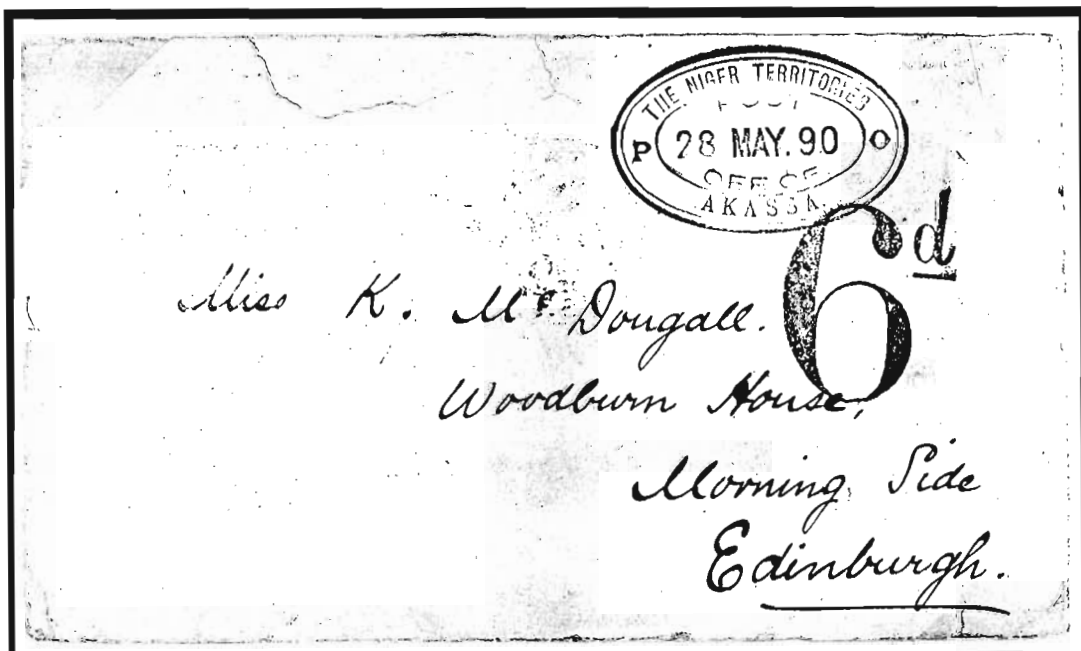 THE NIGER TERRITORIES
POST
P 28 MAY. 90 O
OFFICE
AKASSA
6d
Miss K. Mc Dougall.
Woodburn House,
Morning Side
Edinburgh.